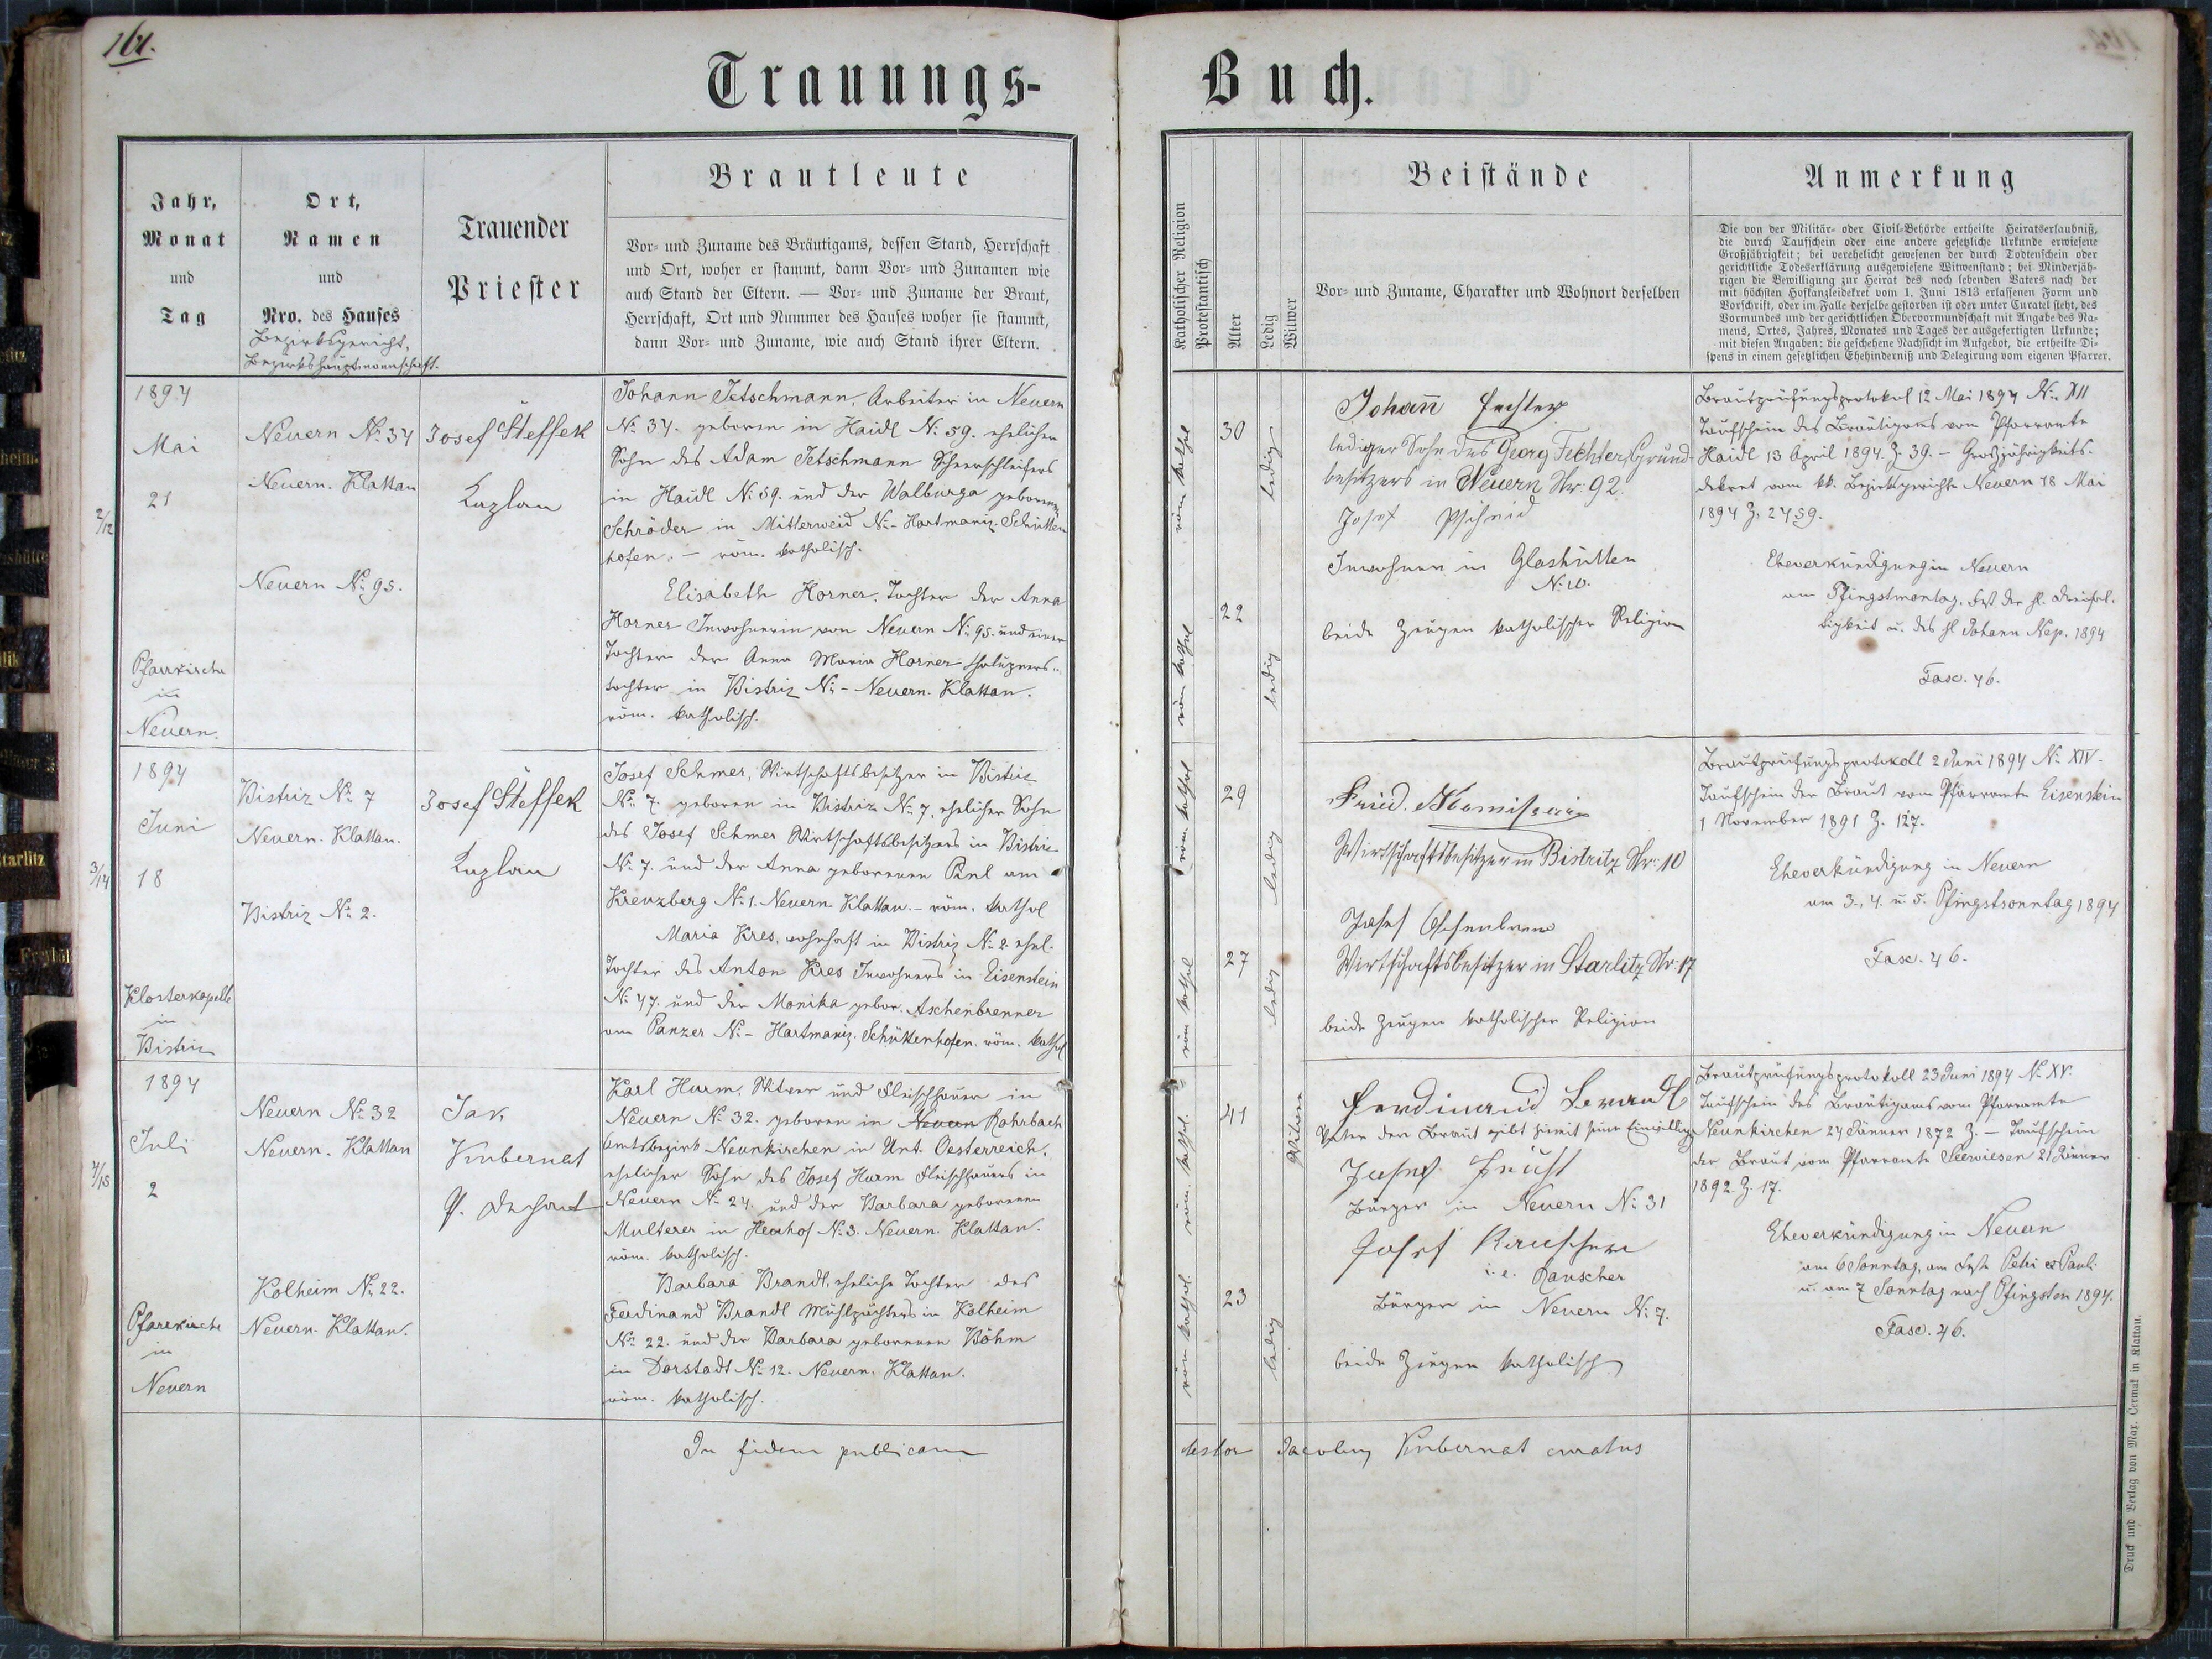 161.
Trauungs-
Jahr,
Monat
und
Tag
Ort,
Namen
und
Nro. des Hauses
Bezirksgericht,
Bezirkshauptmannschaft.
Trauender
Priester
Brautleute
Vor- und Zuname des Bräutigams, dessen Stand, Herrschaft
und Ort, woher er stammt, dann Vor- und Zunamen wie
auch Stand der Eltern. — Vor- und Zuname der Braut,
Herrschaft, Ort und Nummer des Hauses woher sie stammt,
dann Vor- und Zuname, wie auch Stand ihrer Eltern.
1894
Mai
21
2/12
Pfarrkirche
in
Neuern.
Neuern No. 34
Neuern. Klattau
Neuern No. 95.
Josef Steffek
Kaplan
Johann Jetschmann, Arbeiter in Neuern
No 34. geboren in Haidl No. 59. ehelicher
Sohn des Adam Jetschmann Scheerschleifers
in Haidl No. 59. und der Walburga geborene
Schröder in Mitterweid No - Hartmaniz. Schütten
hofen. — röm. katholisch.
Elisabeth Horner, Tochter der Anna
Horner Inwohnerin von Neuern No. 95. und einer
Tochter der Anna Maria Horner Chalupners-
tochter in Bistriz No - Neuern. Klattau.
röm. katholisch.
1894
Juni
18
3/14
Klosterkapelle
in
Bistriz
Bistriz No 7
Neuern. Klattau.
Bistriz No. 2.
Josef Steffek
Kaplan
Josef Schmer, Wirtschaftsbesitzer in Bistriz
No. 7. geboren in Bistriz No 7, ehelicher Sohn
des Josef Schmer Wirtschaftsbesitzers in Bistriz
No 7. und der Anna geborenen am
Kreuzberg No. 1. Neuern Klattau. - röm. kathol
Maria Kres, wohnhaft in Bistriz No. 2. ehel.
Tochter des Anton Kres Inwohners in Eisenstein
No. 47. und der Monika gebor. Aschenbrenner
am Panzer No. - Hartmaniz. Schüttenhofen. röm. kathol
1894
Juli
2
4/15
Pfarrkirche
in
Neuern
Neuern No. 32
Neuern. Klattau
Kolheim No. 22.
Neuern. Klattau.
Jak.
Kubernat
P. Dechant
Karl Hurm, Witwer und Fleischhauer in
Neuern No. 32. geboren in Neuern Rohrbach
Amtsbezirk Neunkirchen in Unt. Oesterreich.
ehelicher Sohn des Josef Hurm Fleischhauers in
Neuern No 24. und der Barbara geborenen
Multerer in Heuhof No. 3. Neuern. Klattau.
röm. katholisch.
Barbara Brandl, eheliche Tochter des
Ferdinand Brandl Mühlpächters in Kolheim
No. 22. und der Barbara geborenen Böhm
in Dorstadt No 12. Neuern. Klattau.
röm. katholisch.
In fidem publicam
Buch.
Katholischer Religion
Protestantisch
Alter
Ledig
Witwer
Beistände
Vor- und Zuname, Charakter und Wohnort derselben
Anmerkung
Die von der Militär- oder Civil-Behörde ertheilte Heiratserlaubniß,
die durch Taufschein oder eine andere gesetzliche Urkunde erwiesene
Großjährigkeit; bei verehelicht gewesenen der durch Todtenschein oder
gerichtliche Todeserklärung ausgewiesene Witwenstand; bei Minderjäh-
rigen die Bewilligung zur Heirat des noch lebenden Vaters nach der
mit höchsten Hofkanzleidekret vom 1. Juni 1813 erlassenen Form und
Vorschrift, oder im Falle derselbe gestorben ist oder unter Curatel steht, des
Vormundes und der gerichtlichen Obervormundschaft mit Angabe des Na-
mens, Ortes, Jahres, Monates und Tages der ausgefertigten Urkunde;
mit diesen Angaben: die geschehene Nachsicht im Aufgebot, die ertheilte Di-
spens in einem gesetzlichen Ehehinderniß und Delegirung vom eigenen Pfarrer.
röm kathol
30
ledig
röm kathol
22
ledig
Johann Fechter
lediger Sohn des Georg Fechter, Grund-
besitzers in Neuern Nr. 92.
Josef
Inwohner in Glashütten
No. 10.
beide Zeugen katholischer Religion
Brautprüfungsprotokol 12 Mai 1894 No. XII
Taufschein des Bräutigams vom Pfarramte
Haidl 13 April 1894. Z. 39. - Großjährigkeits-
dekret vom kk. Bezirksgerichte Neuern 18 Mai
1894 Z. 2459.
Eheverkündigung in Neuern
am Pfingstmontag, Fest der hl. Dreifal-
tigkeit u. des hl Johann Nep. 1894
Fasc. 46.
röm. kathol
29
ledig
röm kathol
27
ledig
Wirtschaftsbesitzer in Bistritz Nr. 10
Josef
Wirtschaftsbesitzer in Starlitz Nr. 17
beide Zeugen katholischer Religion
Brautprüfungsprotokoll 2 Juni 1894 No XIV.
Taufschein der Braut vom Pfarramte Eisenstein
1 November 1891 Z. 127.
Eheverkündigung in Neuern
am 3., 4. u. 5. Pfingstsonntag 1894
Fasc. 46.
röm. kathol.
41
Witwer
röm kathol.
23
ledig
Ferdinand Brandl
Vater der Braut gibt hiemit seine Einwillig
Josef
Bürger in Neuern No. 31
Josef Rauscher
i. e. Rauscher
Bürger in Neuern No. 7.
beide Zeugen katholisch
Brautprüfungsprotokoll 23 Juni 1894 No. XV.
Taufschein des Bräutigams vom Pfarramte
Neunkirchen 24 Jänner 1872 Z. — Taufschein
der Braut vom Pfarramte Seewiesen 21 Jänner
1892. Z. 17.
Eheverkündigung in Neuern
am 6 Sonntag, am Feste Petri et Pauli
u. am 7 Sonntag nach Pfingsten 1894.
Fasc. 46.
testor Jacobus Kubernat curatus
Druck und Verlag von Max. Čermak in Klattau.